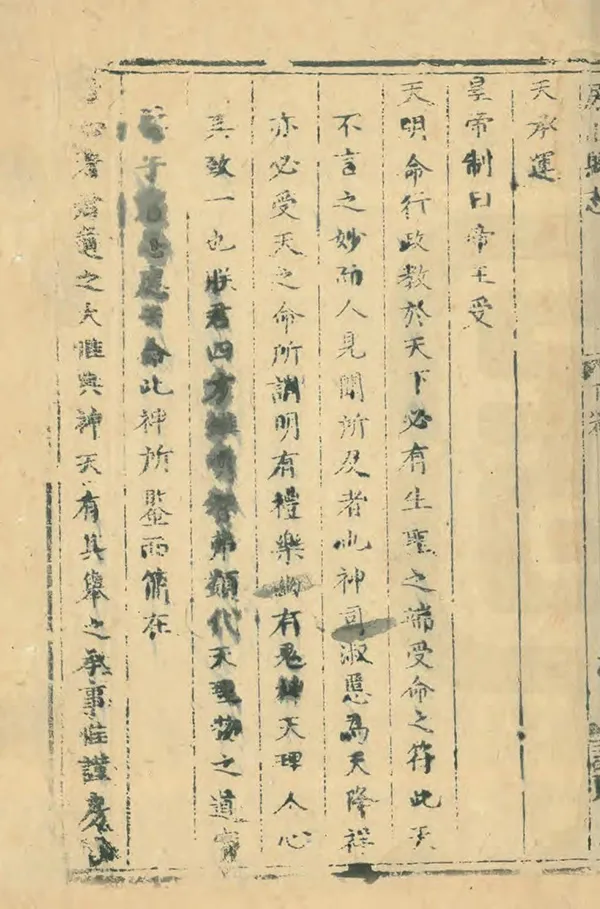 天承運
皇帝制曰帝王受
天明命行政教於天下必有生聖之瑞受命之符此天
不言之妙而人見聞所及者也神司淑慝為天降祥
亦必受天之命所謂明有禮樂幽有鬼神天理人心
其致一也朕君四方雖明智弗類代天理物之道實
于命此神所鑒而簡在
心者君道之大惟典神天有其舉之承事惟謹